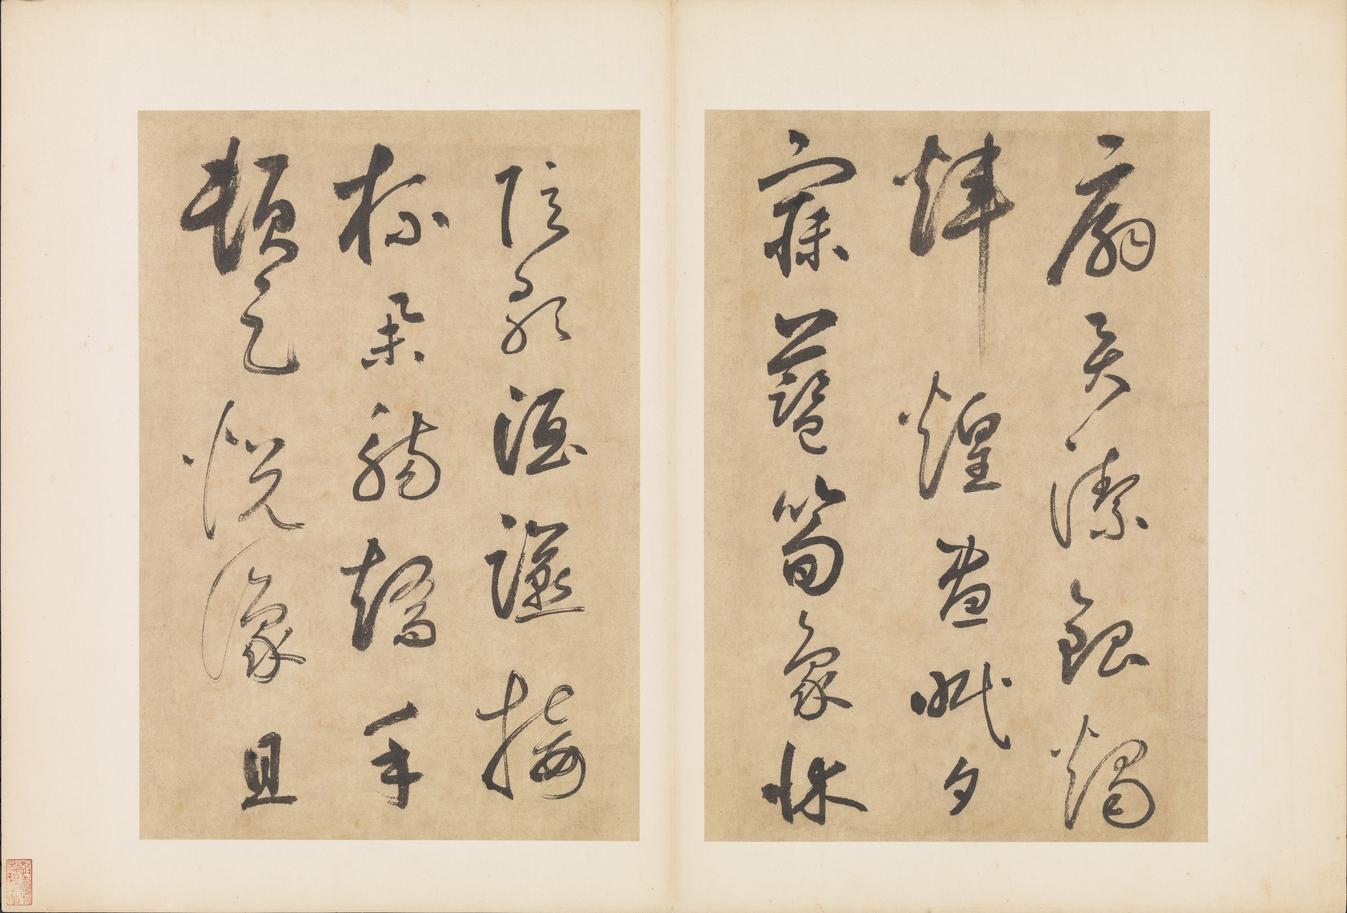 扇員潔銀燭
煒煌晝眠夕
寐藍筍象牀
弦歌酒讌接
杯舉觴矯手
頓足悅豫且